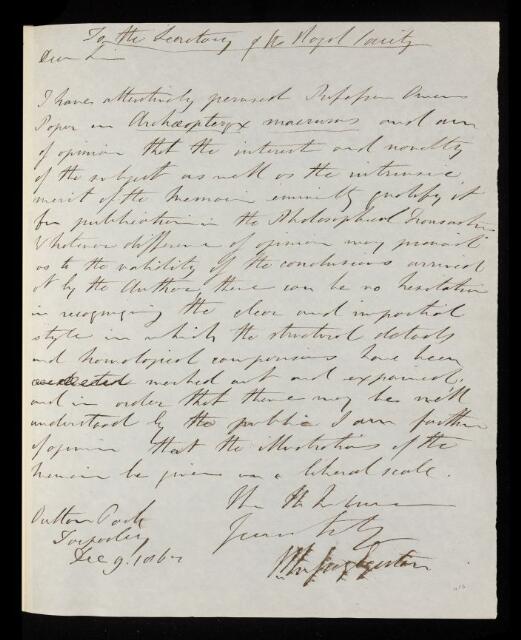 To the Secretary of the Royal Society
Dear Sir
I have attentively perused Professor Owens
Paper on Archæopteryx macrurus and am
of opinion that the interest and novelty
of the subject as well as the intrinsic
merit of the Memoir eminently qualify it
for publication in the Philosophical Transactions
Whatever difference of opinion may prevail
as to the validity of the conclusions arrived
at by the Author there can be no hesitation
in recognizing the clear and impartial
style in which the structural details
and homological comparisons have been
worked out and explained,
and in order that these may be well
understood by the public I am further
of opinion that the illustrations of the
memoir be given on a liberal scale.
Yours truly
Egerton
Oulton Park
Tarporley
Dec 9. 1862